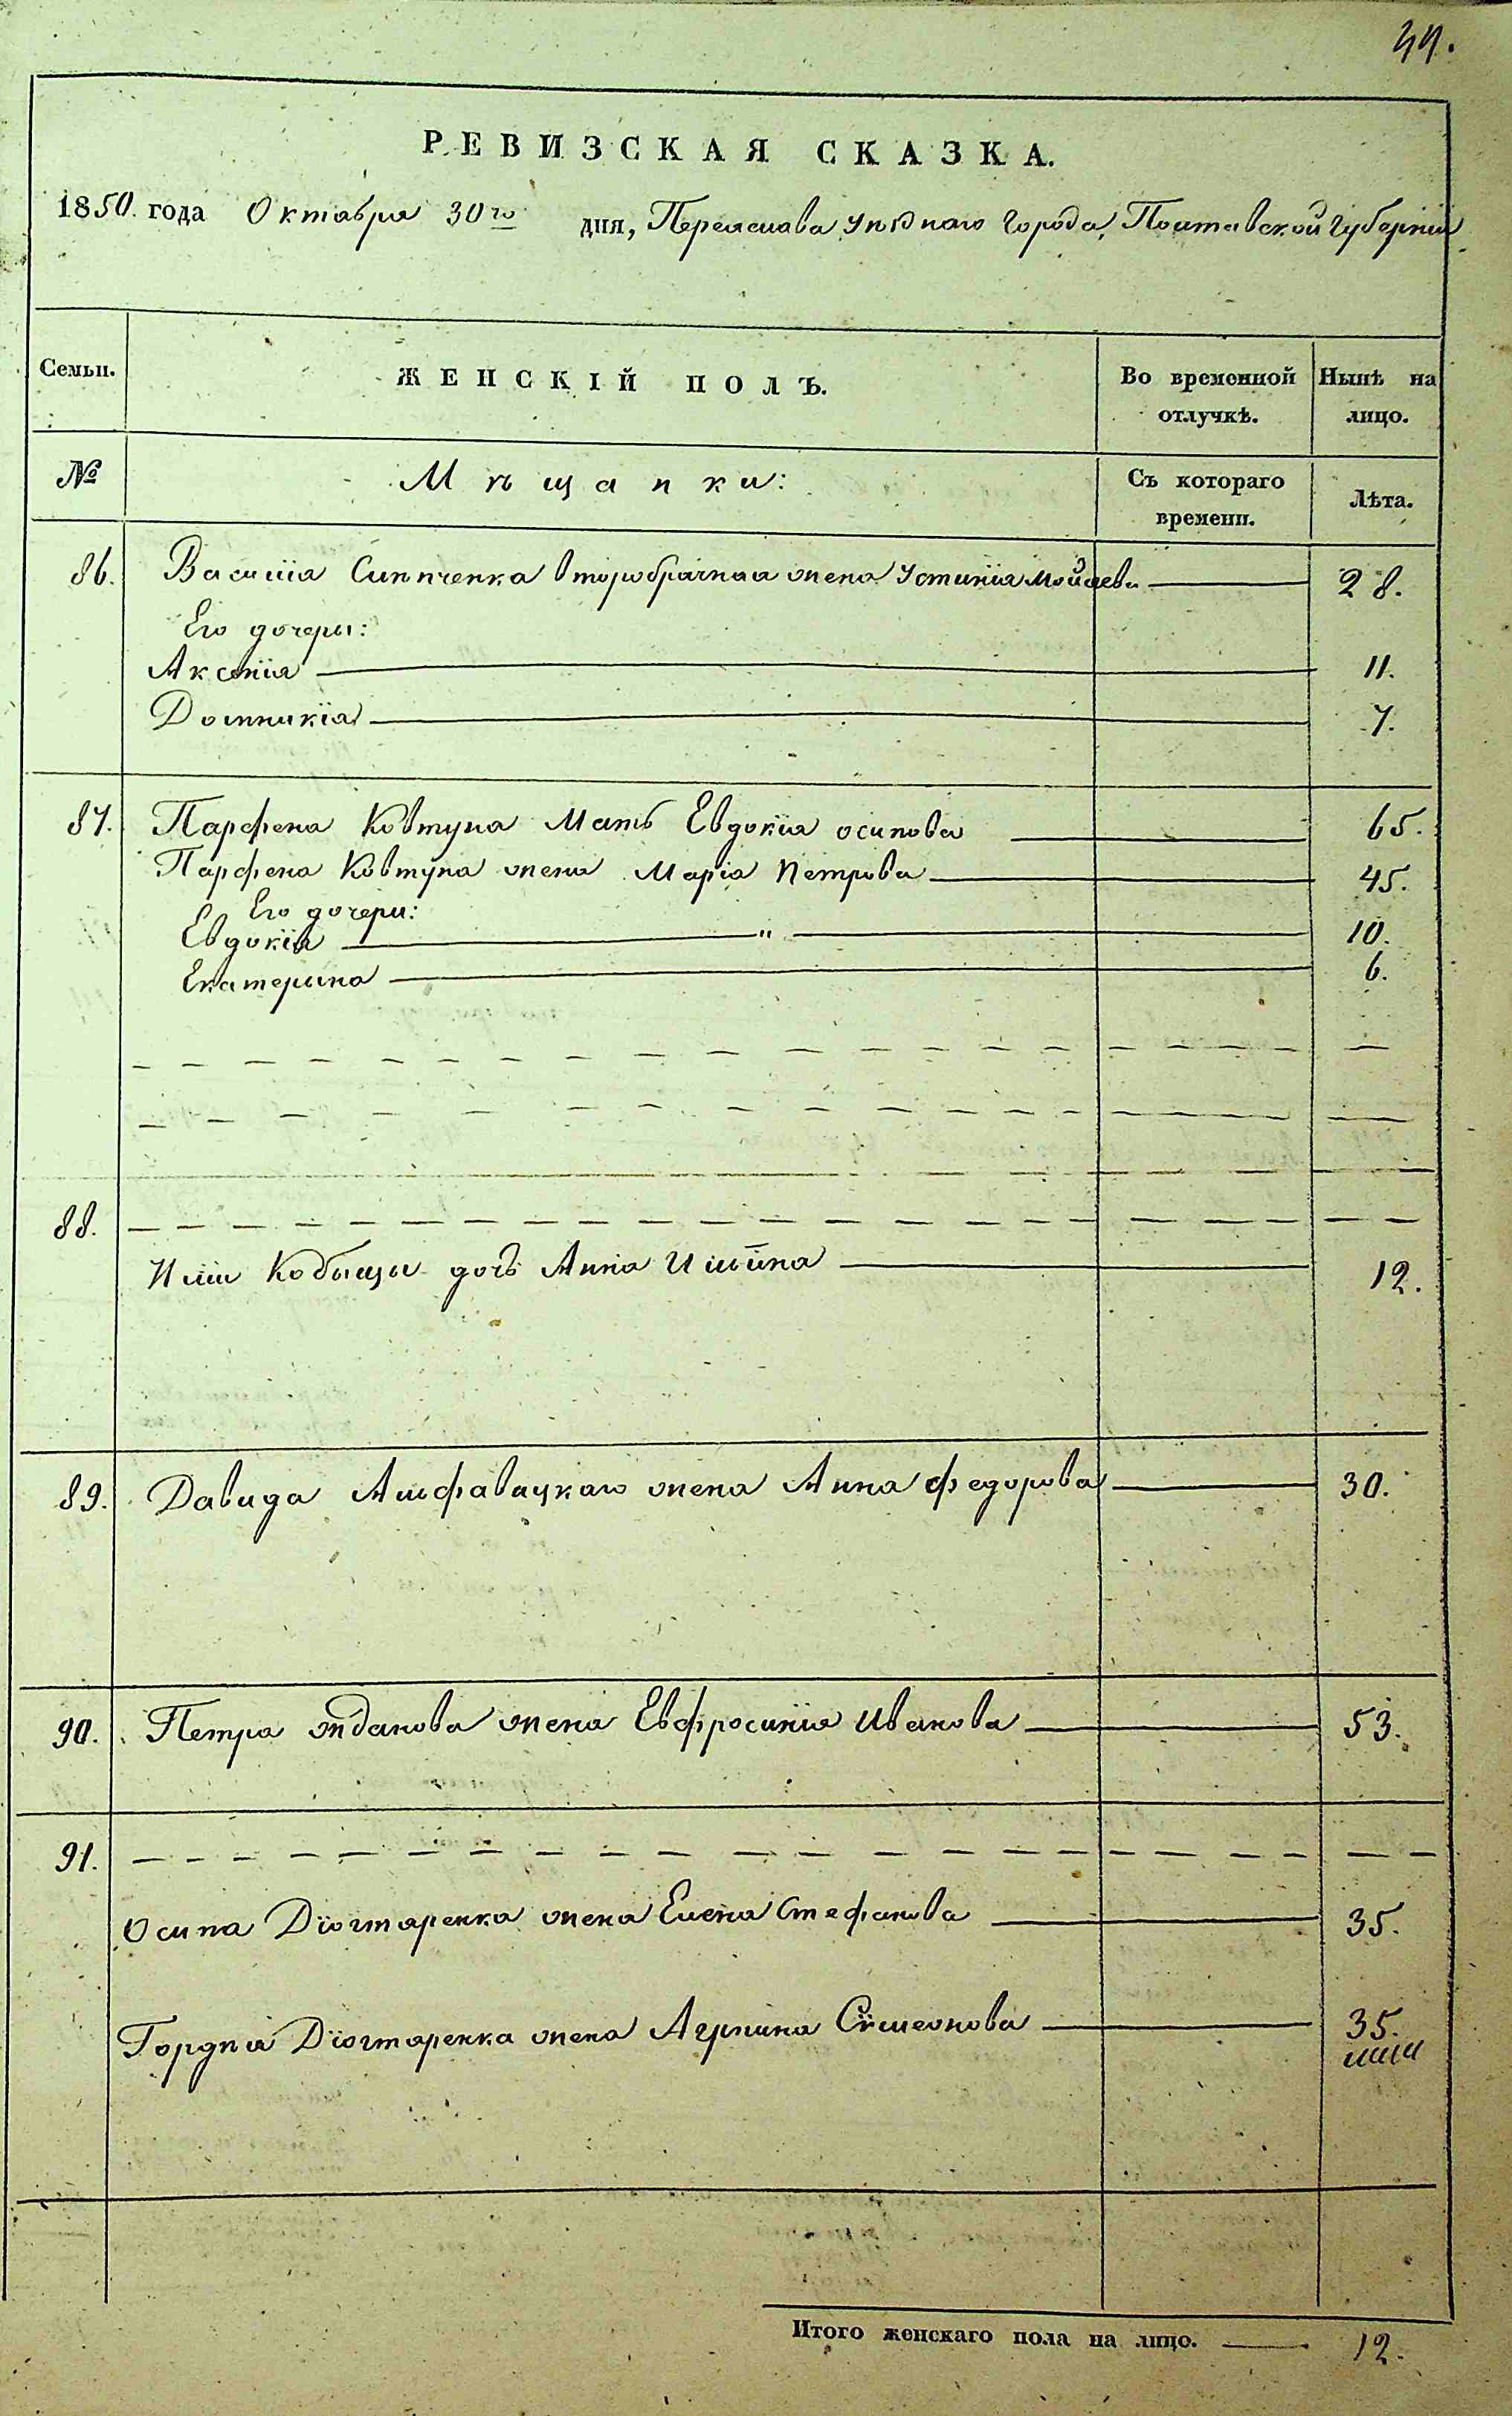 44.
РЕВИЗСКАЯ СКАЗКА.
1850. года Октября 30го дня, Переяслава уѣзднаго города, Полтавской Губерніи
Семьи. ЖЕНСКІЙ ПОЛЪ. Во временной отлучкѣ. Нынѣ на лицо.
№ Мѣщанки: Съ котораго времени. Лѣта.
86. Василія второбрачная жена Устинія Мойсеева 28.
Его дочери:
Аксенія 11.
Домникія 7.
87. Парфена Ковтуна мать Евдокія Осипова 65.
Парфена Ковтуна жена Марія Петрова 45.
Его дочери:
Евдокія " 10.
Екатерина 6.
88.
Иліи Кобыцы дочь Анна Ильина 12.
89. Давида Альфавицкаго жена Анна Федорова 30.
90. Петра Жданова жена Евфросинія Иванова 53.
91.
Осипа Діогтаренка жена Елена Стефанова 35.
Гордѣя Діогтаренка жена Агрипина Симеонова 35.
Итого женскаго пола на лицо. 12.